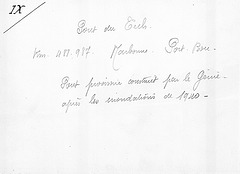 IX
Pont du Tech.
Km 488.987. Narbonne. Port. Bou.
Pont provisoire construit par le Génie.
après les inondations de 1940.